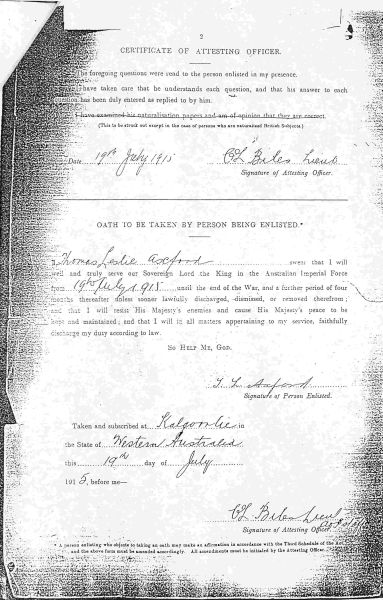 2
CERTIFICATE OF ATTESTING OFFICER.
The foregoing questions were read to the person enlisted in my presence.
I have taken care that he understands each question, and that his answer to each
question has been duly entered as replied to by him.
I have examined his naturalisation papers and am of opinion that they are correct.
(This to be struck out except in the case of persons who are naturalized British Subjects.)
Date 19th July 1915 Lieut
Signature of Attesting Officer.
OATH TO BE TAKEN BY PERSON BEING ENLISTED.*
I Thomas Leslie Axford swear that I will
well and truly serve our Sovereign Lord the King in the Australian Imperial Force
from 19th July 1915 until the end of the War, and a further period of four
months thereafter unless sooner lawfully discharged, dismissed, or removed therefrom;
and that I will resist His Majesty's enemies and cause His Majesty's peace to be
kept and maintained; and that I will in all matters appertaining to my service, faithfully
discharge my duty according to law.
SO HELP ME, GOD.
T L Axford
Signature of Person Enlisted.
Taken and subscribed at Kalgoorlie in
the State of Western Australia
this 19th day of July
1915, before me—
Lieut
Signature of Attesting Officer
* A person enlisting who objects to taking an oath may make an affirmation in accordance with the Third Schedule of the Act
and the above form must be amended accordingly. All amendments must be initialed by the Attesting Officer.